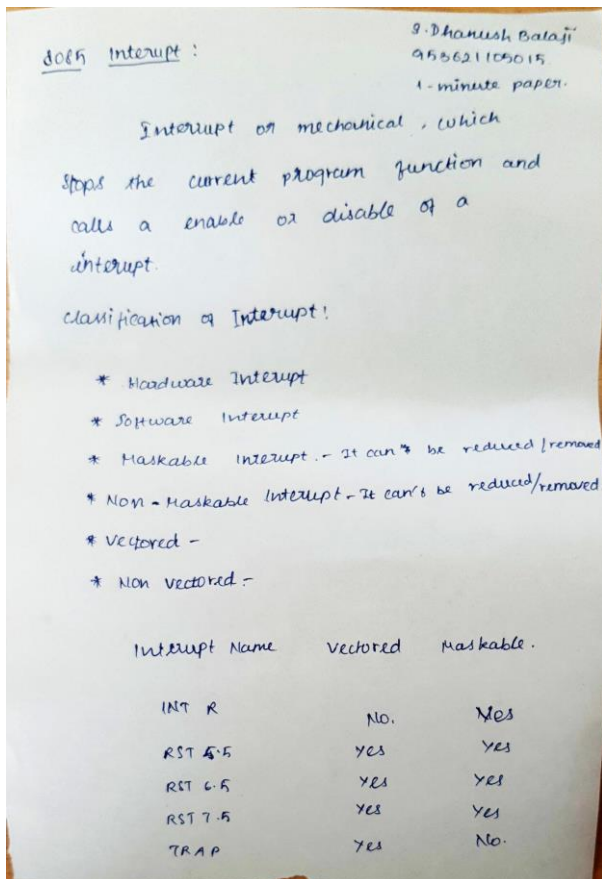 S. Dhanush Balaji
8085 Interupt :
953621105015
1-minute paper.
Interrupt or mechanical, which
stops the current program function and
calls a enable or disable of a
interupt.
Classification of Interupt:
* Hardware Interupt
* Software Interupt
* Maskable Interupt - It can be reduced/removed
* Non-Maskable Interupt - It can't be reduced/removed
* Vectored -
* Non Vectored -
Interupt Name Vectored Maskable.
INT R No. Yes
RST 5.5 Yes Yes
RST 6.5 Yes Yes
RST 7.5 Yes Yes
TRAP Yes No.